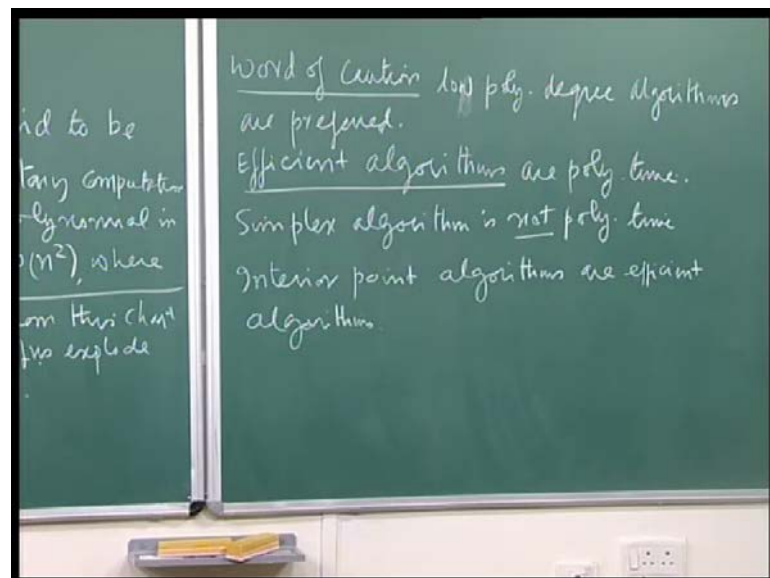 id to be
tary computation
lynomial in
(n²), where
om this chart
explode
Word of Caution low poly. degree algorithms
are preferred.
Efficient algorithms are poly. time.
Simplex algorithm is not poly. time
Interior point algorithms are efficient
algorithms.